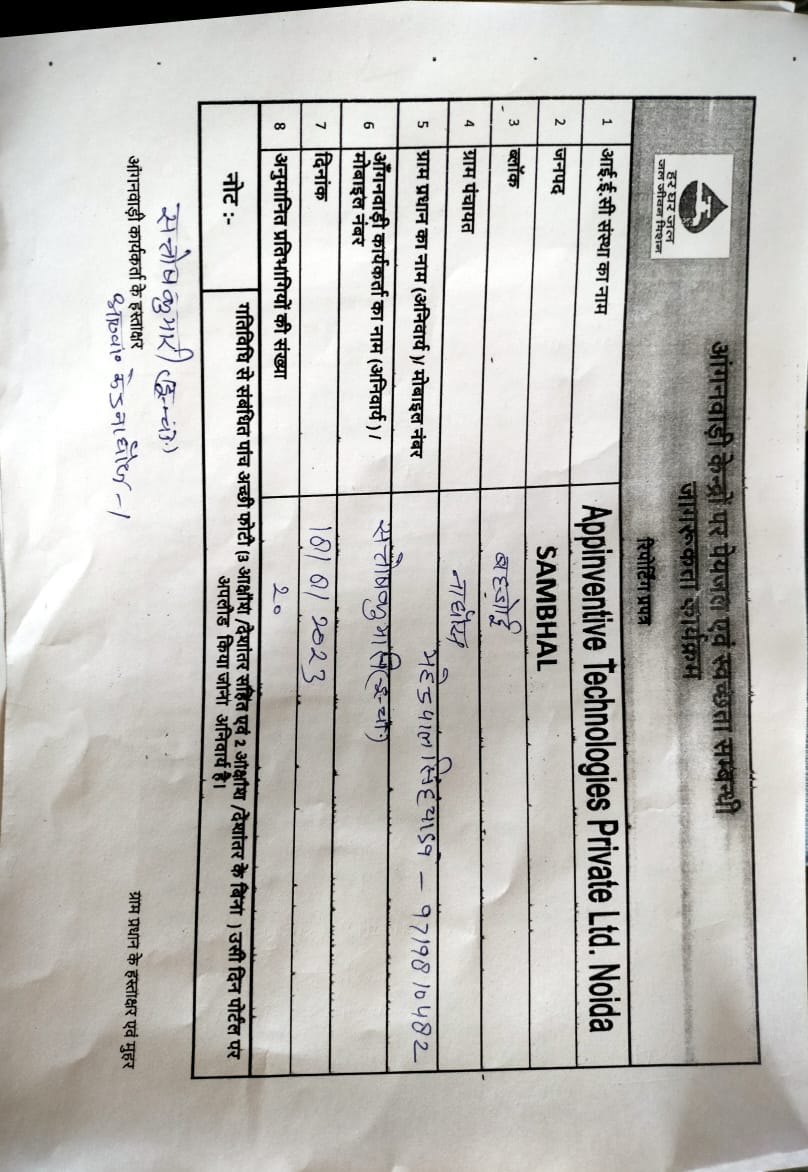 हर घर जल
जल जीवन मिशन
आंगनवाड़ी केन्द्रों पर पेयजल एवं स्वच्छता सम्बन्धी
जागरूकता कार्यक्रम
रिपोर्टिंग प्रपत्र
1 आई.ई.सी संस्था का नाम Appinventive Technologies Private Ltd. Noida
2 जनपद SAMBHAL
3 ब्लॉक
4 ग्राम पंचायत
5 ग्राम प्रधान का नाम (अनिवार्य )/ मोबाइल नंबर - 9719810482
6 आँगनवाड़ी कार्यकर्ता का नाम (अनिवार्य ) /
मोबाइल नंबर
7 दिनांक 18/01/2023
8 अनुमानित प्रतिभागियों की संख्या २०
नोट :- गतिविधि से संबंधित पांच अच्छी फोटो (3 अक्षांश /देशांतर सहित एवं 2 अक्षांश /देशांतर के बिना ) उसी दिन पोर्टल पर
अपलोड किया जाना अनिवार्य है।
सन्तोष कुमारी
आंगनवाड़ी कार्यकर्ता के हस्ताक्षर
ग्राम प्रधान के हस्ताक्षर एवं मुहर